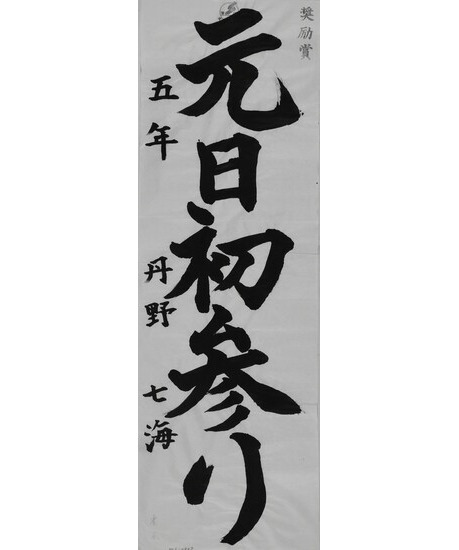 奨励賞
元日初参り
五年 丹野 七海